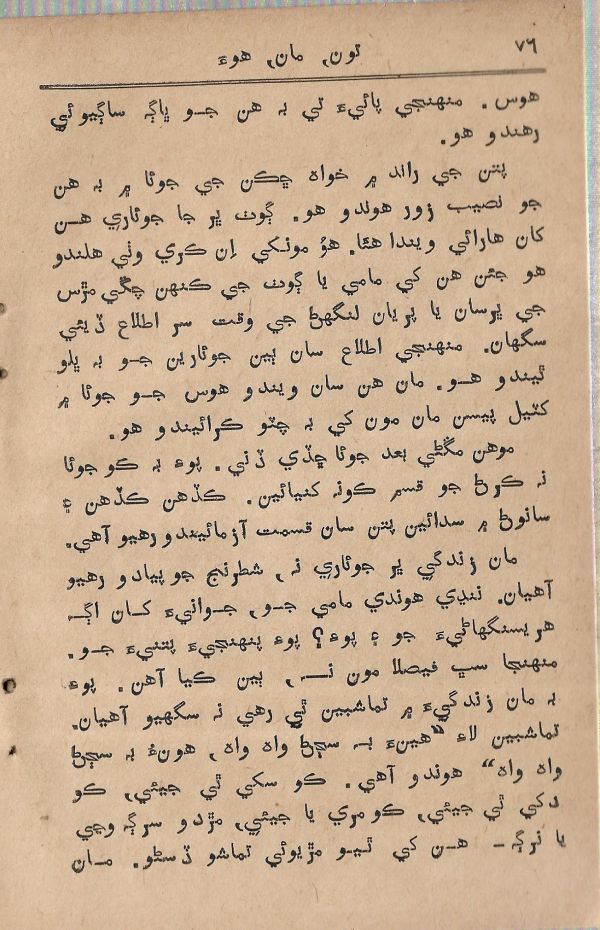 ٧٦
تون، مان، هوءَ
هوس. منهنجي پاتيءَ تي به هن جو ڀاڳ ساڳيوئي
رهندو هو.
پتن جي راند ۾ خواه ڇڪن جي جوئا ۾ به هن
جو نصيب زور هوندو هو. ڳوٺ ڀر جا جوئاري هن
کان هارائي ويندا هئا. هوُ مونکي اِن ڪري وٺي هلندو
هو جئن هن کي مامي يا ڳوٺ جي ڪنهن چڱي مڙس
جي ڀرسان يا پريان لنگهڻ جي وقت سر اطلاع ڏيئي
سگهان. منهنجي اطلاع سان ٻين جوئارين جو به ڀلو
ٿيندو هو. مان هن سان ويندو هوس جو جوئا ۾
کٽيل پيسن مان مون کي به چٽو ڪرائيندو هو.
موهن مڱڻي بعد جوئا ڇڏي ڏني. پوءِ به ڪو جوئا
نه ڪرڻ جو قسم ڪونه کنيائين. ڪڏهن ڪڏهن ۽
سانوڻ ۾ سدائين پتن سان قسمت آزمائيندو رهيو آهي.
مان زندگي ڀر جوئاري نه، شطرنج جو پيادو رهيو
آهيان. ننڍي هوندي مامي جو، جوانيءَ کان اڳـ
هريسنگهاڻيءَ جو ۽ پوءِ؟ پوءِ پنهنجيءَ پتنيءَ جو.
منهنجا سڀ فيصلا مون نه، ٻين ڪيا آهن. پوءِ
به مان زندگيءَ ۾ تماشبين ٿي رهي نه سگهيو آهيان.
تماشبين لاءِ “هينءَ به سڄڻ واه واه، هونءُ به سڄڻ
واه واه“ هوندو آهي. ڪو سکي ٿي جيئي، ڪو
دکي ٿي جيئي، ڪو مري يا جيئي، مڙدو سرڳ وڃي
يا نرڳ - هن کي ٿيو مڙيوئي تماشو ڏسڻو. مان